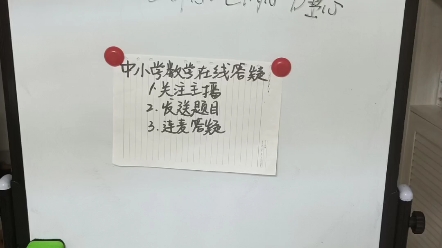 中小学数学在线答疑
1.关注主播
2.发送题目
3.连麦答疑